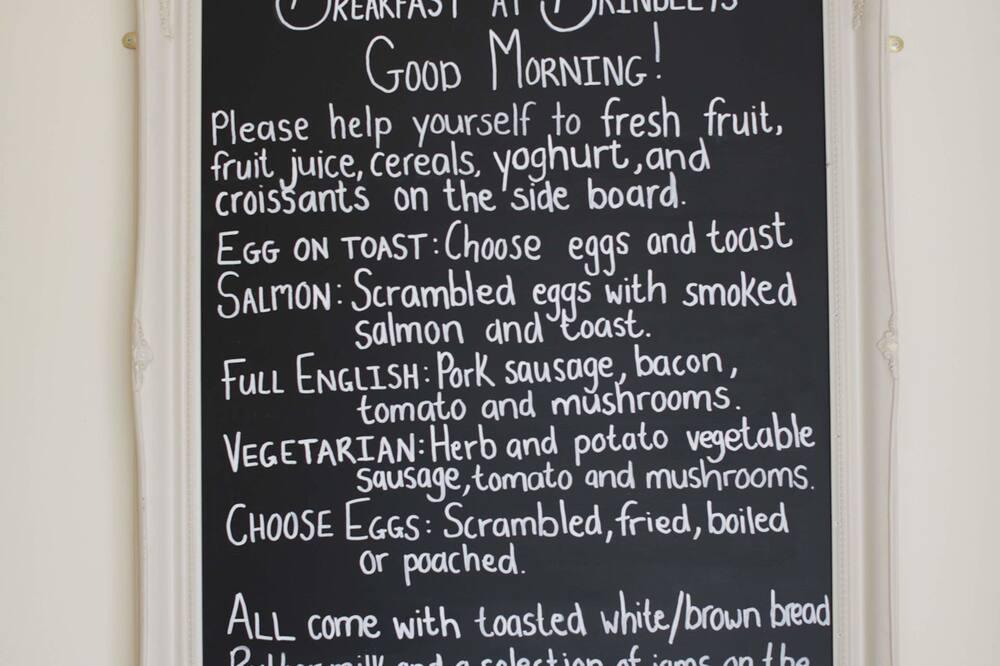 BREAKFAST AT BRINDLEYS
GOOD MORNING!
Please help yourself to fresh fruit,
fruit juice, cereals, yoghurt, and
croissants on the side board.
EGG ON TOAST: Choose eggs and toast
SALMON: Scrambled eggs with smoked
salmon and toast.
FULL ENGLISH: Pork sausage, bacon,
tomato and mushrooms.
VEGETARIAN: Herb and potato vegetable
sausage, tomato and mushrooms.
CHOOSE EGGS: Scrambled, fried, boiled
or poached.
ALL come with toasted white/brown bread
milk and a selection of jams on the